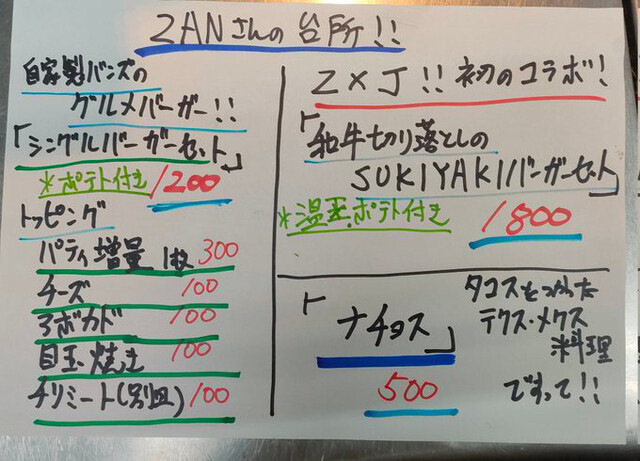 ZANさんの台所!!
自家製バンズの
グルメバーガー!!
「シングルバーガーセット」
*ポテト付き 1200
トッピング
パティ増量 1枚 300
チーズ 100
アボカド 100
目玉焼き 100
チリミート(別皿) 100
Z×J!! 初のコラボ!
「和牛切り落としの
SUKIYAKIバーガーセット」
*温玉.ポテト付き
1800
「ナチョス」
500
タコスをつかった
テクス・メクス
料理
ですって!!